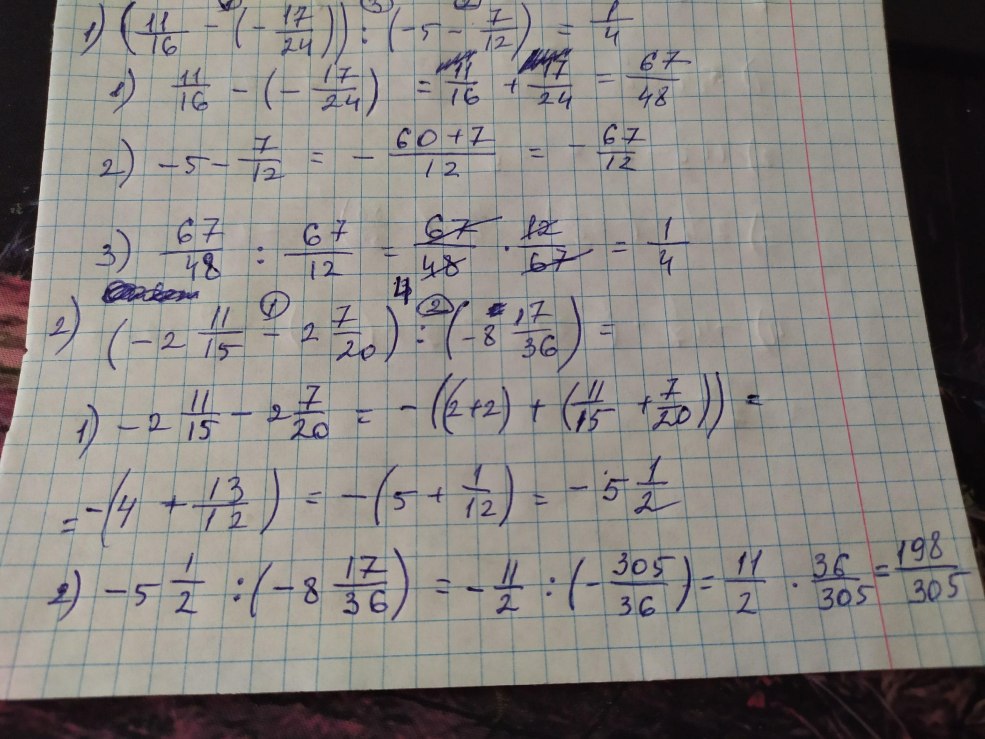 1) (11/16 - (-17/24)) : (-5 - 7/12) = 1/4
1) 11/16 - (-17/24) = 11/16 + 17/24 = 67/48
2) -5 - 7/12 = - (60+7)/12 = - 67/12
3) 67/48 : 67/12 = 67/48 · 12/67 = 1/4
4
2) (-2 11/15 - 2 7/20) : (-8 17/36) =
1) -2 11/15 - 2 7/20 = -((2+2) + (11/15 + 7/20)) =
= -(4 + 13/12) = -(5 + 1/12) = -5 1/2
2) -5 1/2 : (-8 17/36) = -11/2 : (-305/36) = 11/2 · 36/305 = 198/305